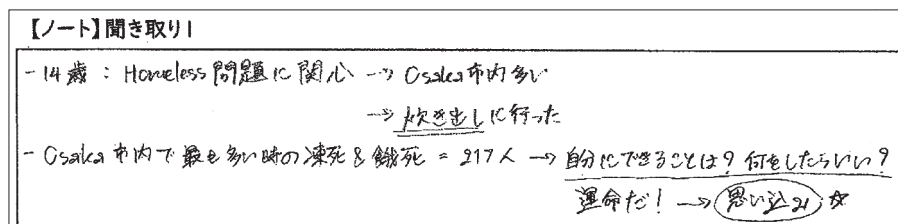 【ノート】聞き取り1
- 14歳 : Homeless 問題に関心 → Osaka市内多い
→ 炊き出しに行った
- Osaka 市内で最も多い時の凍死 & 餓死 = 217人 → 自分にできることは? 何をしたらいい?
運命だ! → 思い込み ☆